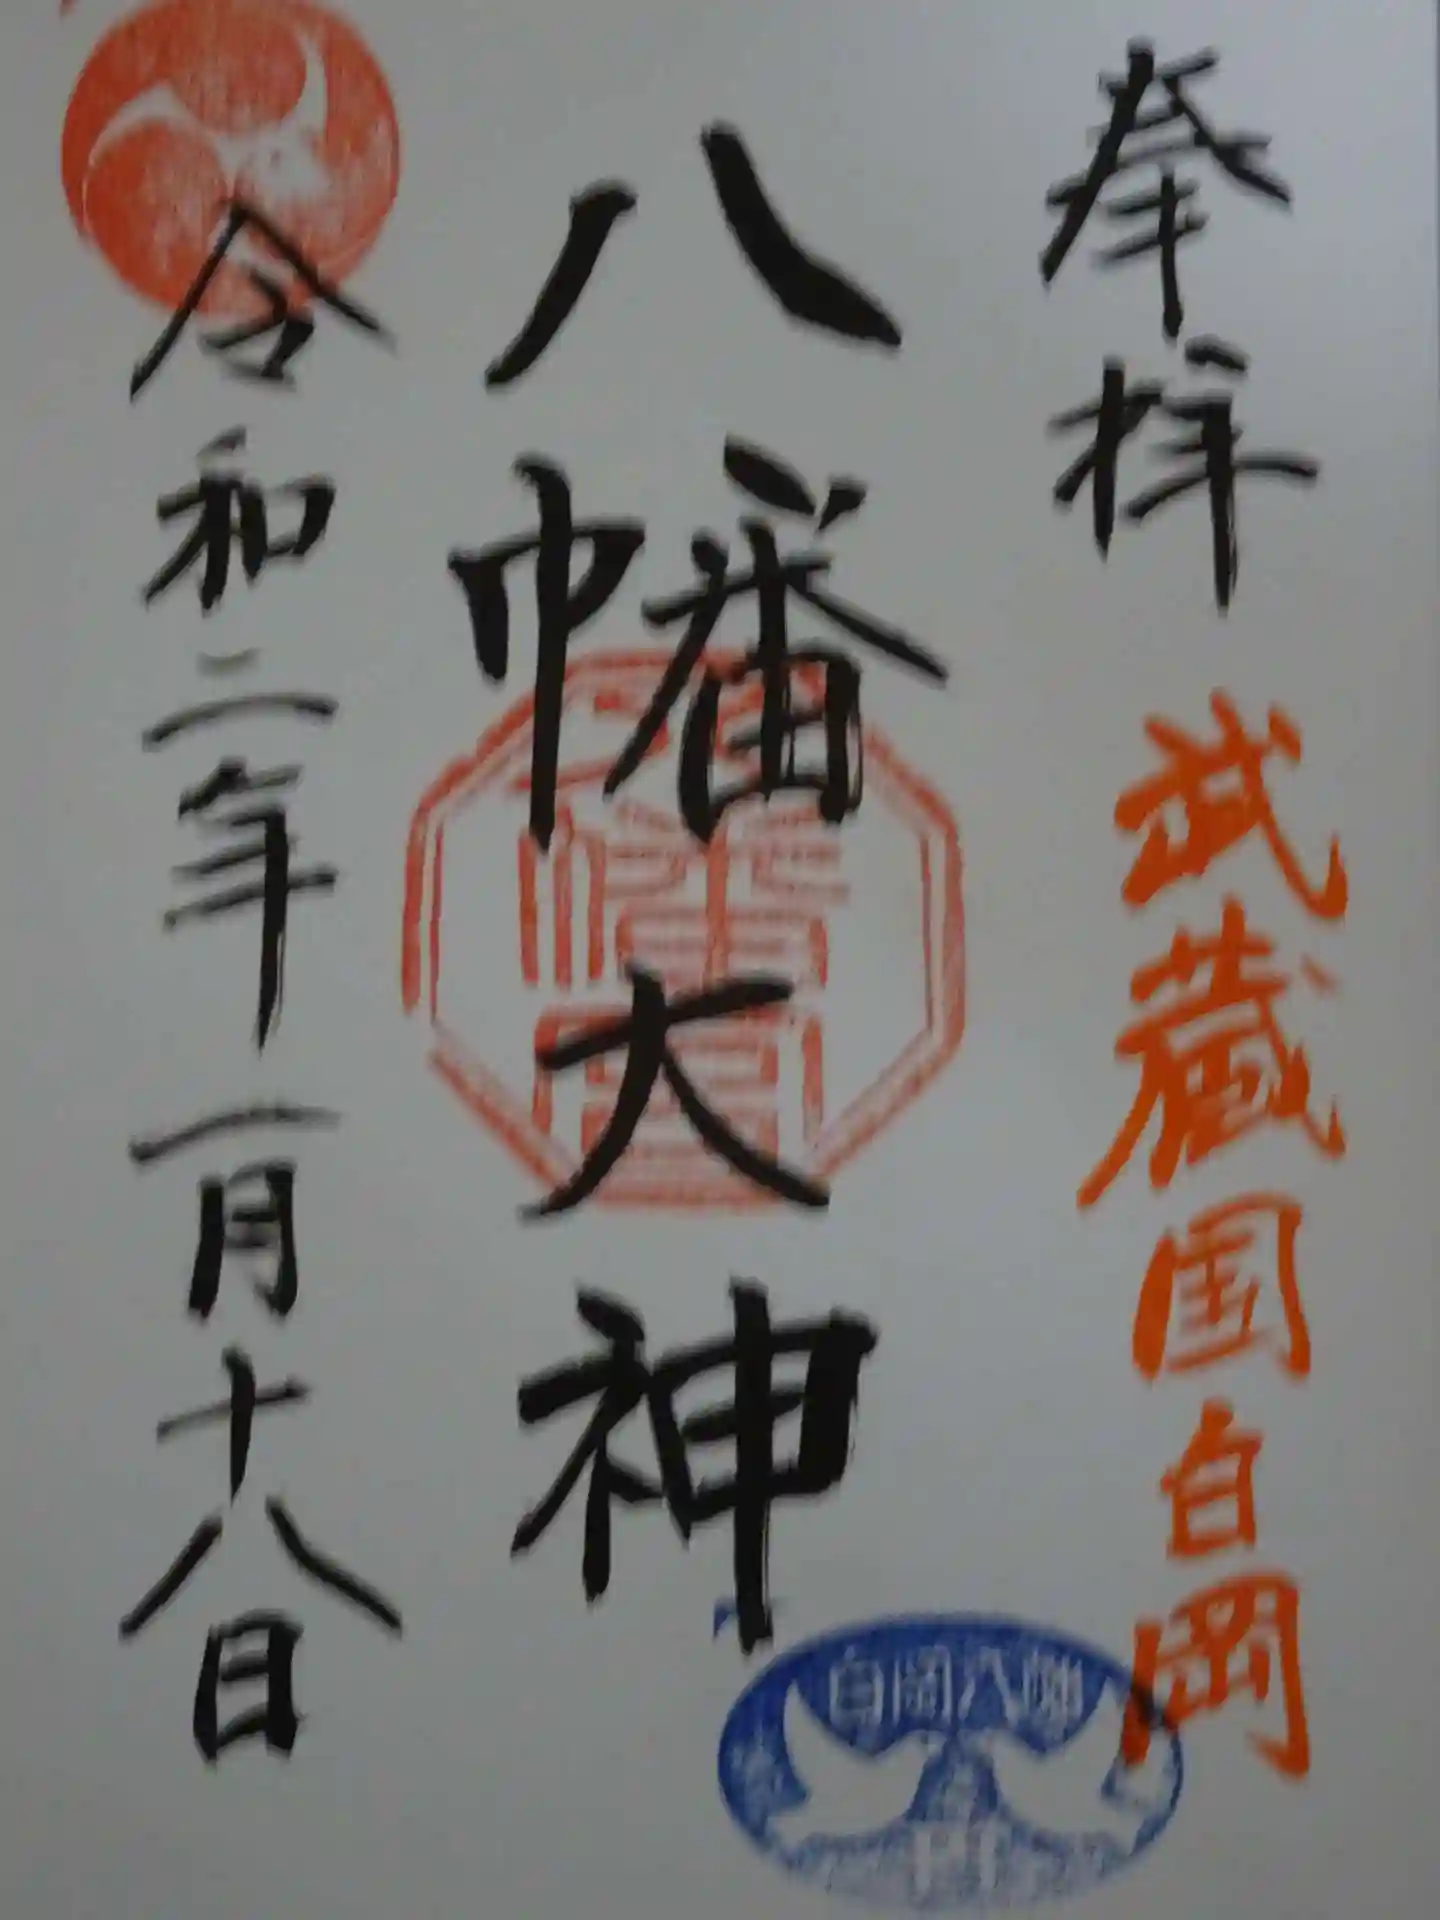 奉拝
武蔵国白岡
八幡大神
令和二年一月十八日
白岡八幡